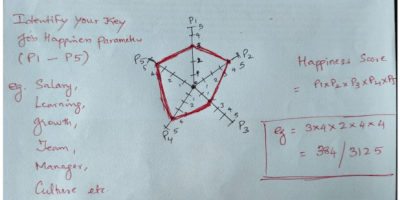 Identify your Key
Job Happiness Parameters
(P1 - P5)
eg. Salary,
Learning,
Growth,
Team,
Manager,
Culture etc.
P1
5
4
3
2
1
P2
5
4
P3
5
4
3
P4
5
4
P5
5
4
Happiness Score
= P1xP2xP3xP4xP5
eg = 3x4x2x4x4
= 384/3125